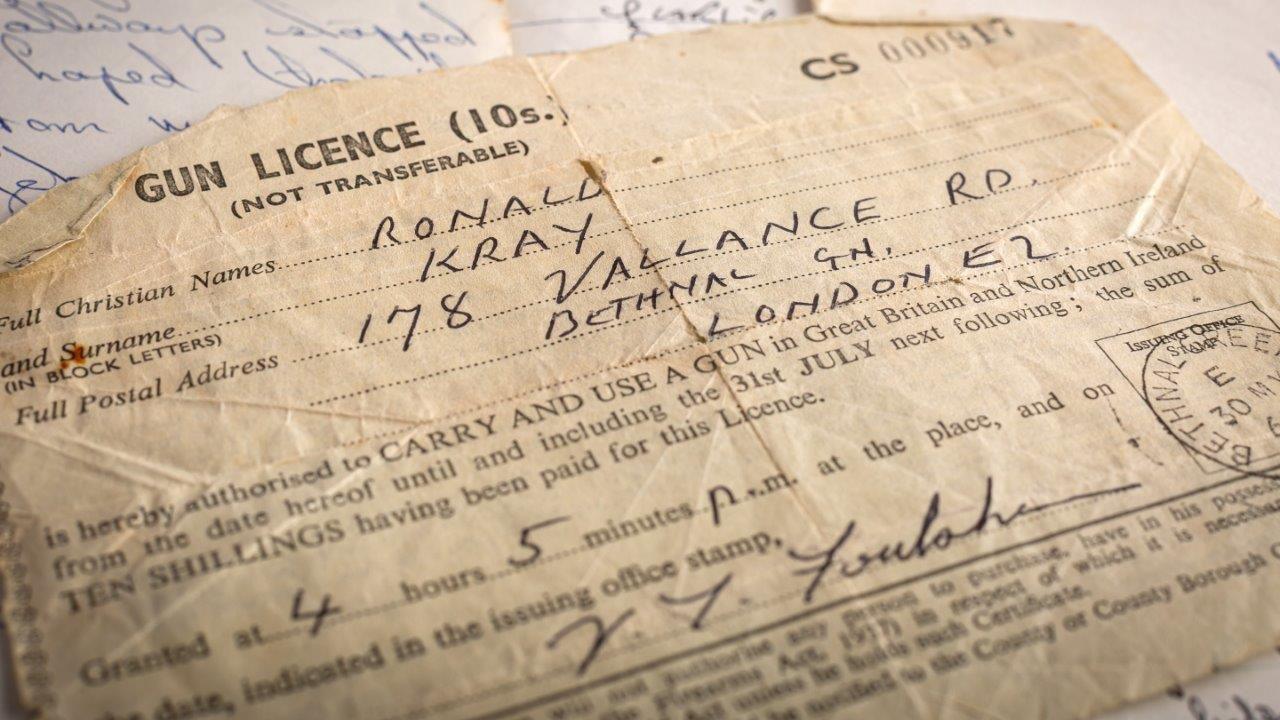 always stopped
hoped
CS 000917
GUN LICENCE (10s.)
(NOT TRANSFERABLE)
Full Christian Names RONALD
and Surname KRAY
(IN BLOCK LETTERS)
Full Postal Address 178 VALLANCE RD.
BETHNAL GN.
LONDON E2.
is hereby authorised to CARRY AND USE A GUN in Great Britain and Northern Ireland
from the date hereof until and including the 31st JULY next following; the sum of
TEN SHILLINGS having been paid for this Licence.
Granted at 4 hours 5 minutes p.m. at the place, and on
the date, indicated in the issuing office stamp.
ISSUING OFFICE
STAMP
BETHNAL GREE
E
30 MY
6
will not authorise any person to purchase, have in his possess
Firearms Act, 1937) in respect of which it is necessar
Act unless he holds such Certificate.
be notified to the County or County Borough C